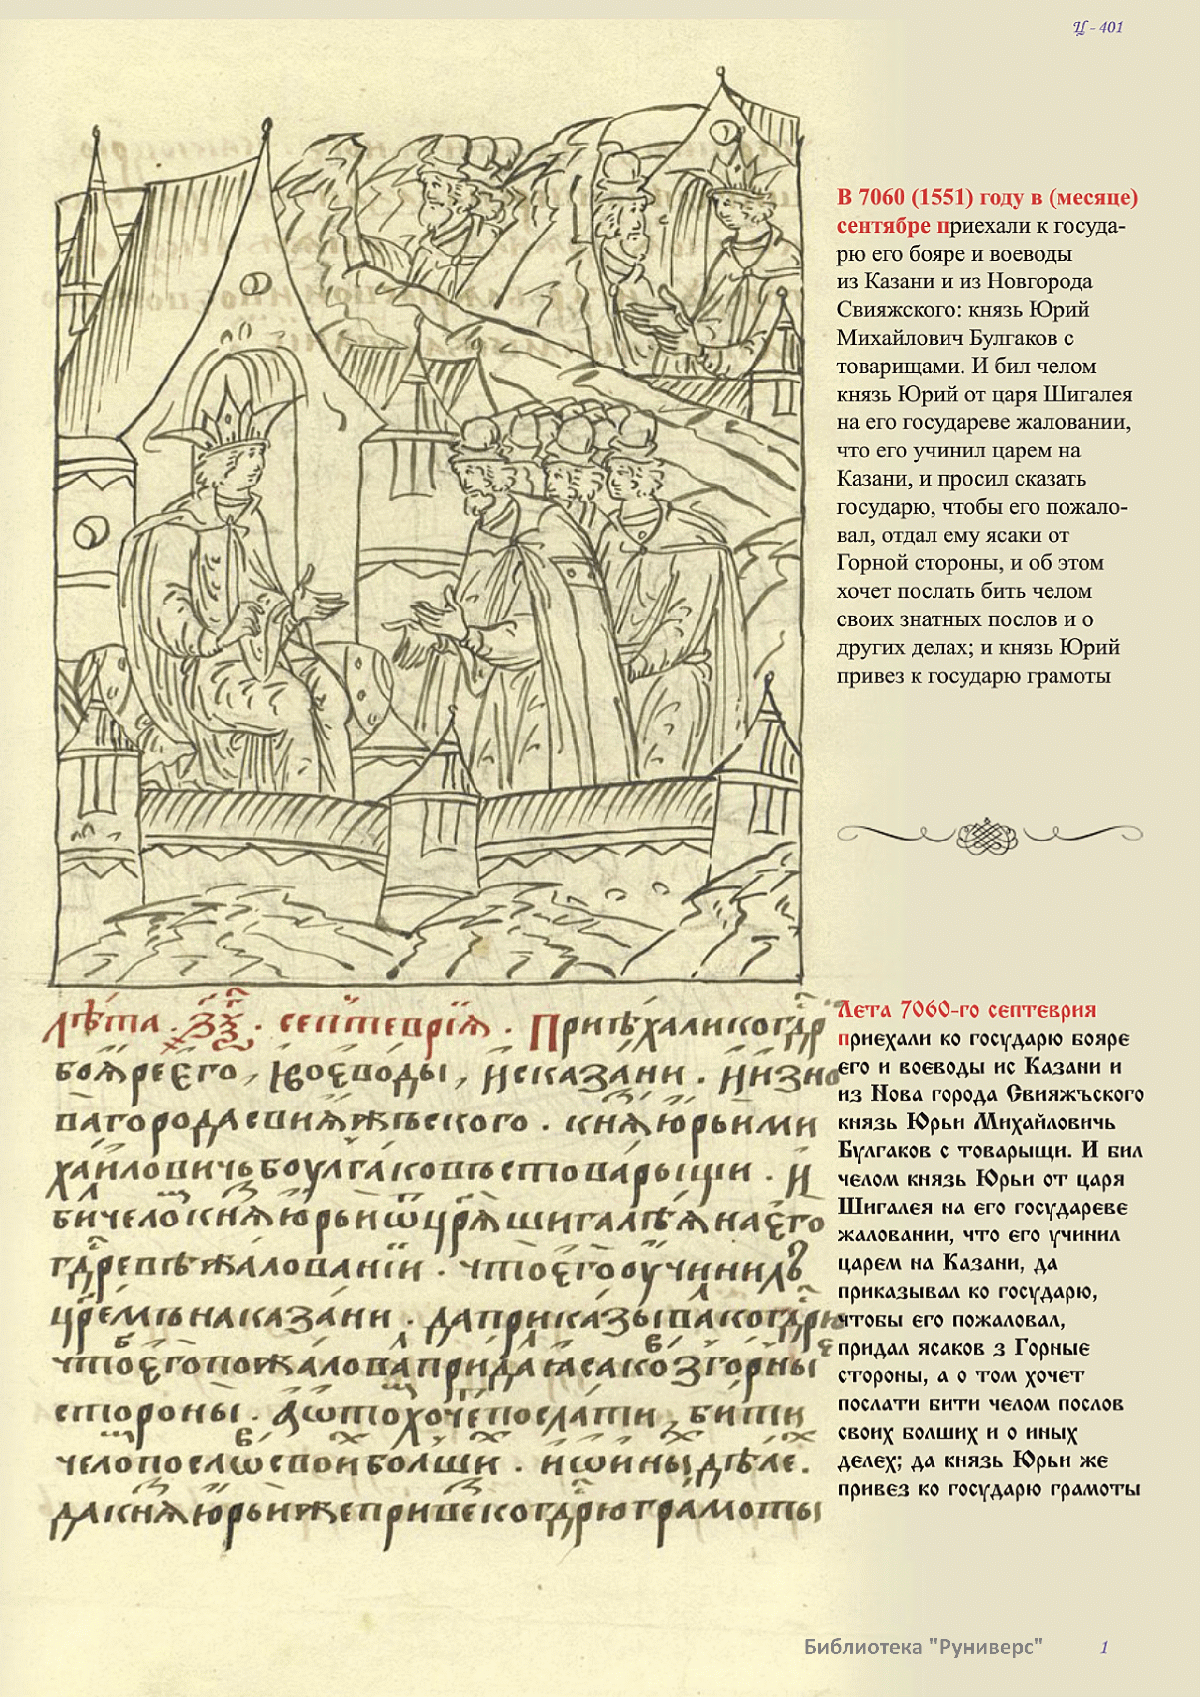 Ц - 401
В 7060 (1551) году в (месяце)
сентябре приехали к госуда-
рю его бояре и воеводы
из Казани и из Новгорода
Свияжского: князь Юрий
Михайлович Булгаков с
товарищами. И бил челом
князь Юрий от царя Шигалея
на его государеве жаловании,
что его учинил царем на
Казани, и просил сказать
государю, чтобы его пожало-
вал, отдал ему ясаки от
Горной стороны, и об этом
хочет послать бить челом
своих знатных послов и о
других делах; и князь Юрий
привез к государю грамоты
лѣта . ҂зѯ҃ . септеврїя . Приѣхаликогд҃рю
бояреего , ивоеводы , исказани . иизно
вагородасвияжьского . кнзяюрьими
хаиловичьбоулгаковъстоварыщи . и
бичелокнзяюрьиѿцр҃яшигалѣянаего
гд҃ревѣжалованїи . чтоегооучинилъ
цр҃емънаказани . даприказывакогд҃рю
чтоегопожаловапридаꙗсакозгорны
стороны . аѡтохочепослати , бити
челопослѡсвоиболши . иѡиныдѣле .
дакнзяюрьижепривекогд҃рюграмоты
Лета 7060-го септеврия
приехали ко государю бояре
его и воеводы ис Казани и
из Нова города Свияжъского
князь Юрьи Михайловичь
Булгаков с товарыщи. И бил
челом князь Юрьи от царя
Шигалея на его государеве
жаловании, что его учинил
царем на Казани, да
приказывал ко государю,
чтобы его пожаловал,
придал ясаков з Горные
стороны, а о том хочет
послати бити челом послов
своих болших и о иных
делех; да князь Юрьи же
привез ко государю грамоты
Библиотека "Руниверс"
1